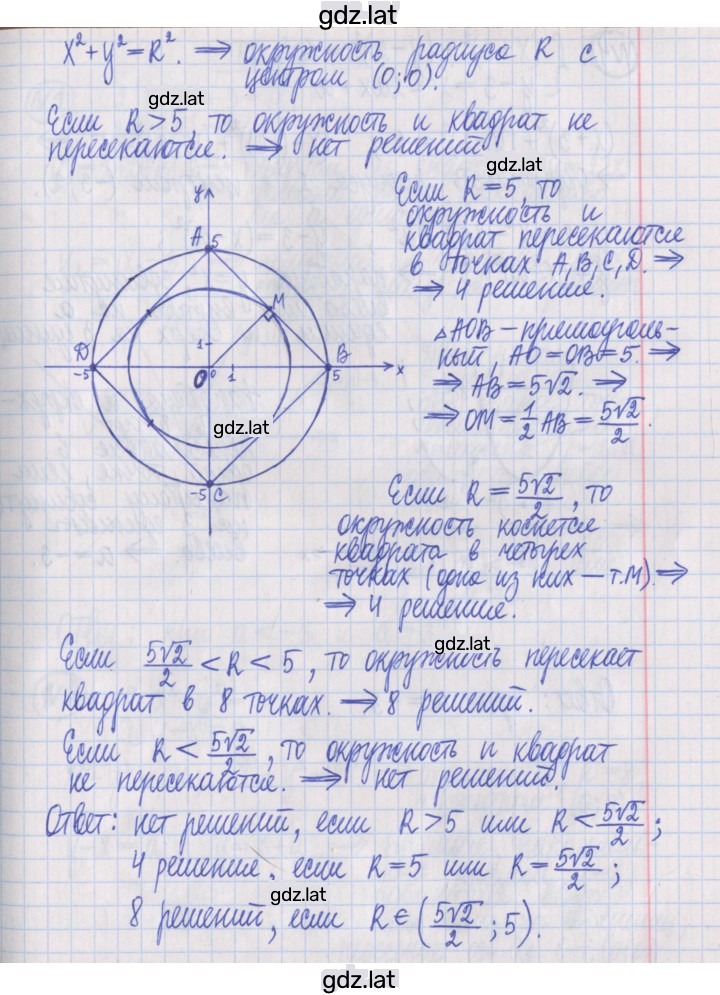 gdz.lat
x² + y² = R². ⇒ окружность радиуса R с
центром (0;0).
gdz.lat
Если R > 5, то окружность и квадрат не
пересекаются. ⇒ нет решений
gdz.lat
Если R = 5, то
окружность и
квадрат пересекаются
в точках A, B, C, D. ⇒
⇒ 4 решения.
y
A 5
M
1
D
-5
O 0 1
B
5
x
gdz.lat
-5 C
△AOB – прямоуголь-
ный, AO = OB = 5. ⇒
⇒ AB = 5√2. ⇒
⇒ OM = 1/2 AB = 5√2/2.
Если R = 5√2/2, то
окружность коснется
квадрата в четырех
точках (одна из них – т.M). ⇒
⇒ 4 решения.
gdz.lat
Если 5√2/2 < R < 5, то окружность пересекает
квадрат в 8 точках. ⇒ 8 решений.
Если R < 5√2/2, то окружность и квадрат
не пересекаются. ⇒ нет решений.
Ответ: нет решений, если R > 5 или R < 5√2/2;
4 решения, если R = 5 или R = 5√2/2;
gdz.lat
8 решений, если R ∈ (5√2/2; 5).
gdz.lat